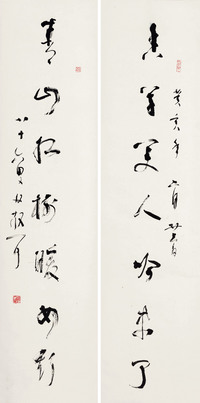 香草美人吟未了
癸亥年六月
青山紅樹暖如
八十六叟林散耳